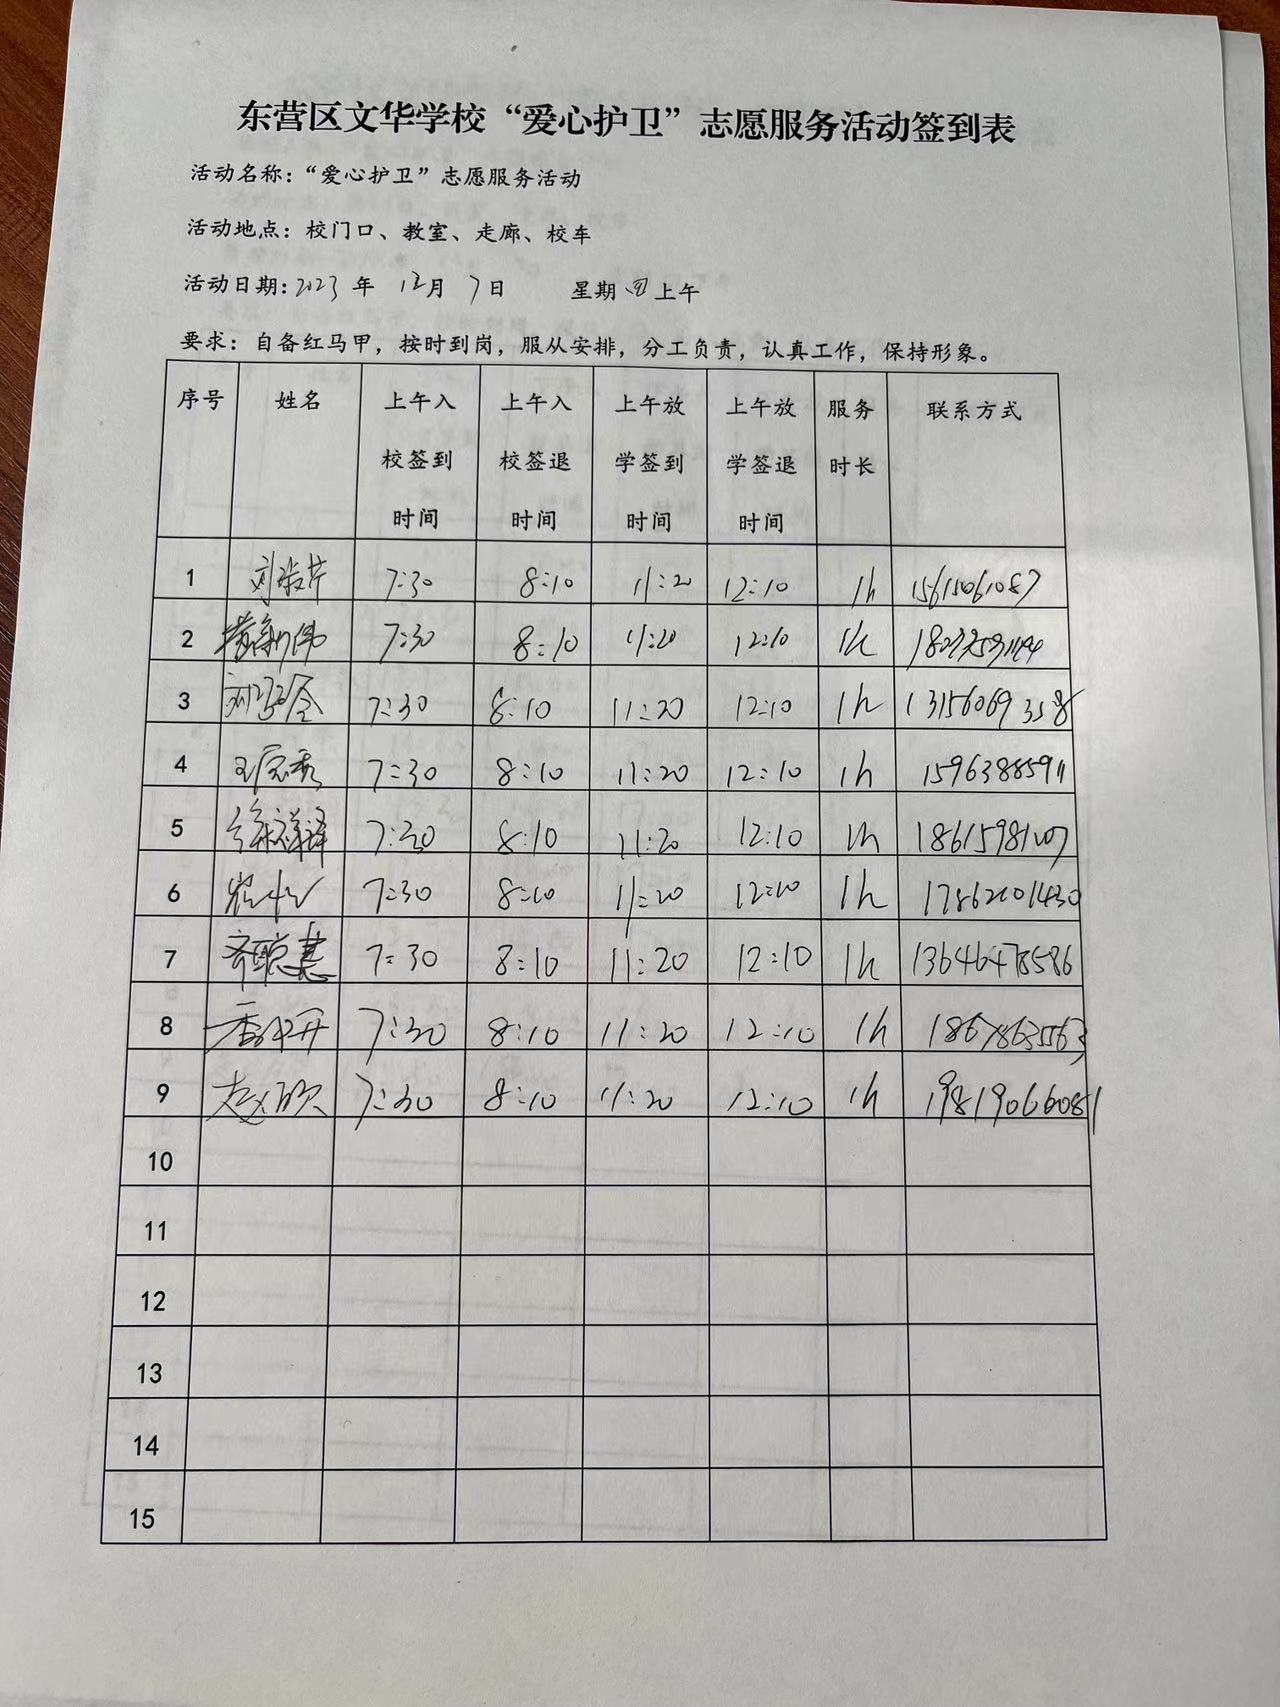 东营区文华学校“爱心护卫”志愿服务活动签到表
活动名称：“爱心护卫”志愿服务活动
活动地点：校门口、教室、走廊、校车
活动日期：2023年 12月 7日 星期四上午
要求：自备红马甲，按时到岗，服从安排，分工负责，认真工作，保持形象。
序号 姓名 上午入校签到时间 上午入校签退时间 上午放学签到时间 上午放学签退时间 服务时长 联系方式
1 7:30 8:10 11:20 12:10 1h 15615061087
2 7:30 8:10 11:20 12:10 1h
3 7:30 8:10 11:20 12:10 1h 13156069358
4 7:30 8:10 11:20 12:10 1h 15963885911
5 徐祥泽 7:30 8:10 11:20 12:10 1h 18615981207
6 7:30 8:10 11:20 12:10 1h 17862101430
7 齐聪慧 7:30 8:10 11:20 12:10 1h 13646478586
8 7:30 8:10 11:20 12:10 1h 18678635563
9 赵欣 7:30 8:10 11:20 12:10 1h 19819066081
10
11
12
13
14
15